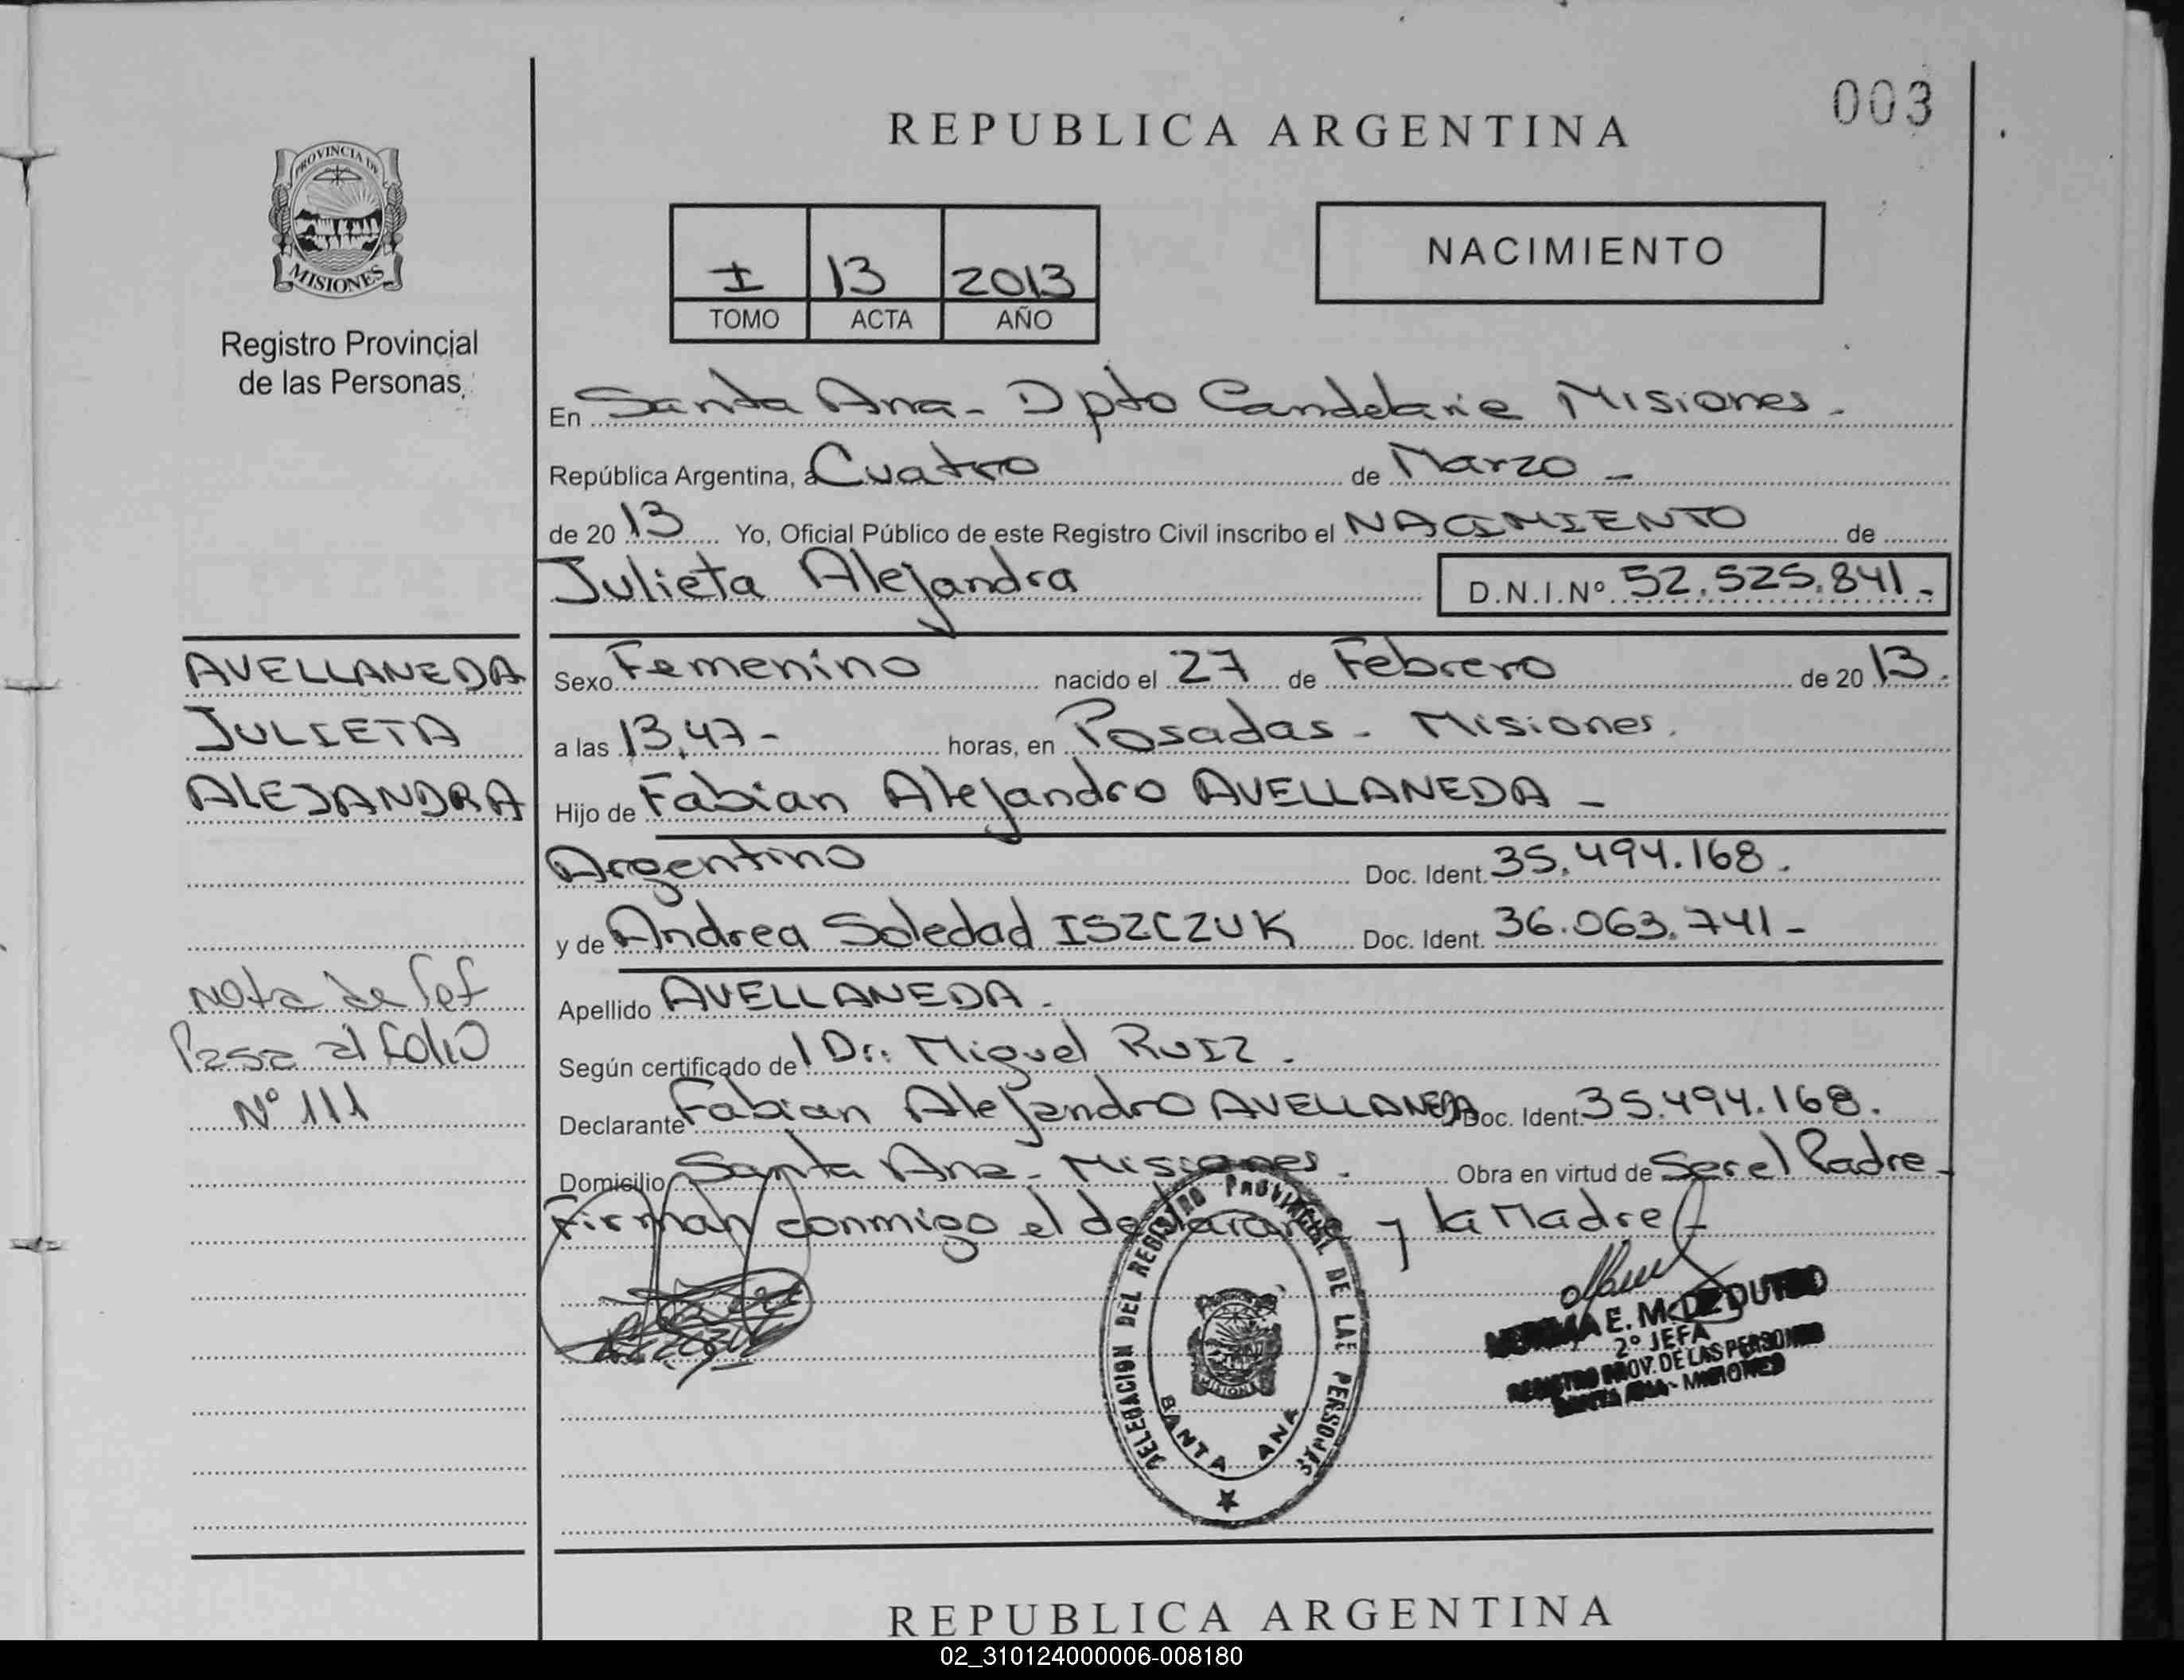 003
REPUBLICA ARGENTINA
PROVINCIA DE
MISIONES
Registro Provincial
de las Personas
I 13 2013
TOMO ACTA AÑO
NACIMIENTO
En Santa Ana - Dpto Candelaria Misiones.
República Argentina, a Cuatro de Marzo -
de 2013 Yo, Oficial Público de este Registro Civil inscribo el NACIMIENTO de
Julieta Alejandra D.N.I.Nº 52.525.841.-
AVELLANEDA
JULIETA
ALEJANDRA
Nota de Ref
Pasa al folio
Nº 111
Sexo Femenino nacido el 27 de Febrero de 2013.
a las 13,47- horas, en Posadas - Misiones.
Hijo de Fabian Alejandro AVELLANEDA -
Argentino Doc. Ident. 35.494.168.
y de Andrea Soledad ISZCZUK Doc. Ident. 36.063.741-
Apellido AVELLANEDA.
Según certificado del Dr. Miguel RUIZ.
Declarante Fabian Alejandro AVELLANEDA Doc. Ident. 35.494.168.
Domicilio Santa Ana - Misiones. Obra en virtud de Ser el Padre-
Firman conmigo el declarante y la Madre
DELEGACION DEL REGISTRO PROVINCIAL DE LAS PERSONAS
MISIONES
SANTA ANA
E. M. DE DUTRO
2º JEFA
REGISTRO PROV. DE LAS PERSONAS
SANTA ANA - MISIONES
REPUBLICA ARGENTINA
02_310124000006-008180